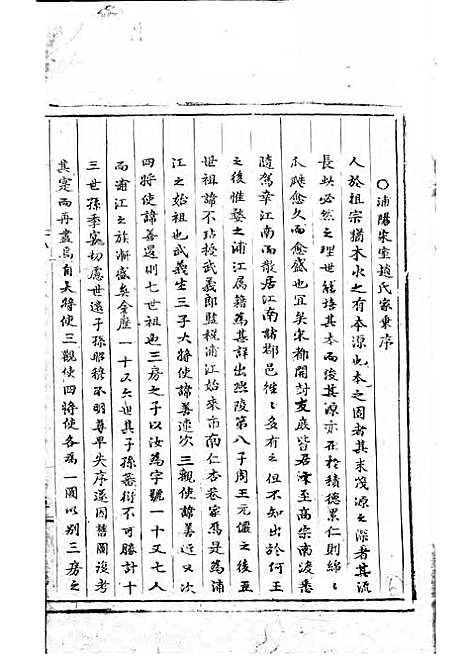 ○浦陽宋室趙氏家乗序
人於祖宗猶木水之有本源也本之固者其末茂源之深者其流
長此必然之理世能培其本而浚其源亦在於積德累仁則綿〻
瓜瓞愈久而愈盛也宜矣宋都開封友族皆居漳至高宗南渡悉
隨駕幸江南而散居江南諸郡邑雖〻多有之但不知出於何王
之後惟婺之浦江属籍為甚詳出熙陵第八子周王元儼之後五
世祖諱不玷授武義郎監稅浦江始來市南仁杏巷家焉是為浦
江之始祖也武義生三子大將使諱善連次三觀使諱善近又次
四將使諱善還則七世祖三房之子以汝為字號一十又七人
而浦江之族漸盛矣今歷一十又六世其子孫蕃衍不可勝計十
三世孫季寬切慮世遠子孫昭穆不明尊卑失序遂因舊圖復考
其寔而再畫焉自大將使三觀使四將使各為一圖以别三房之